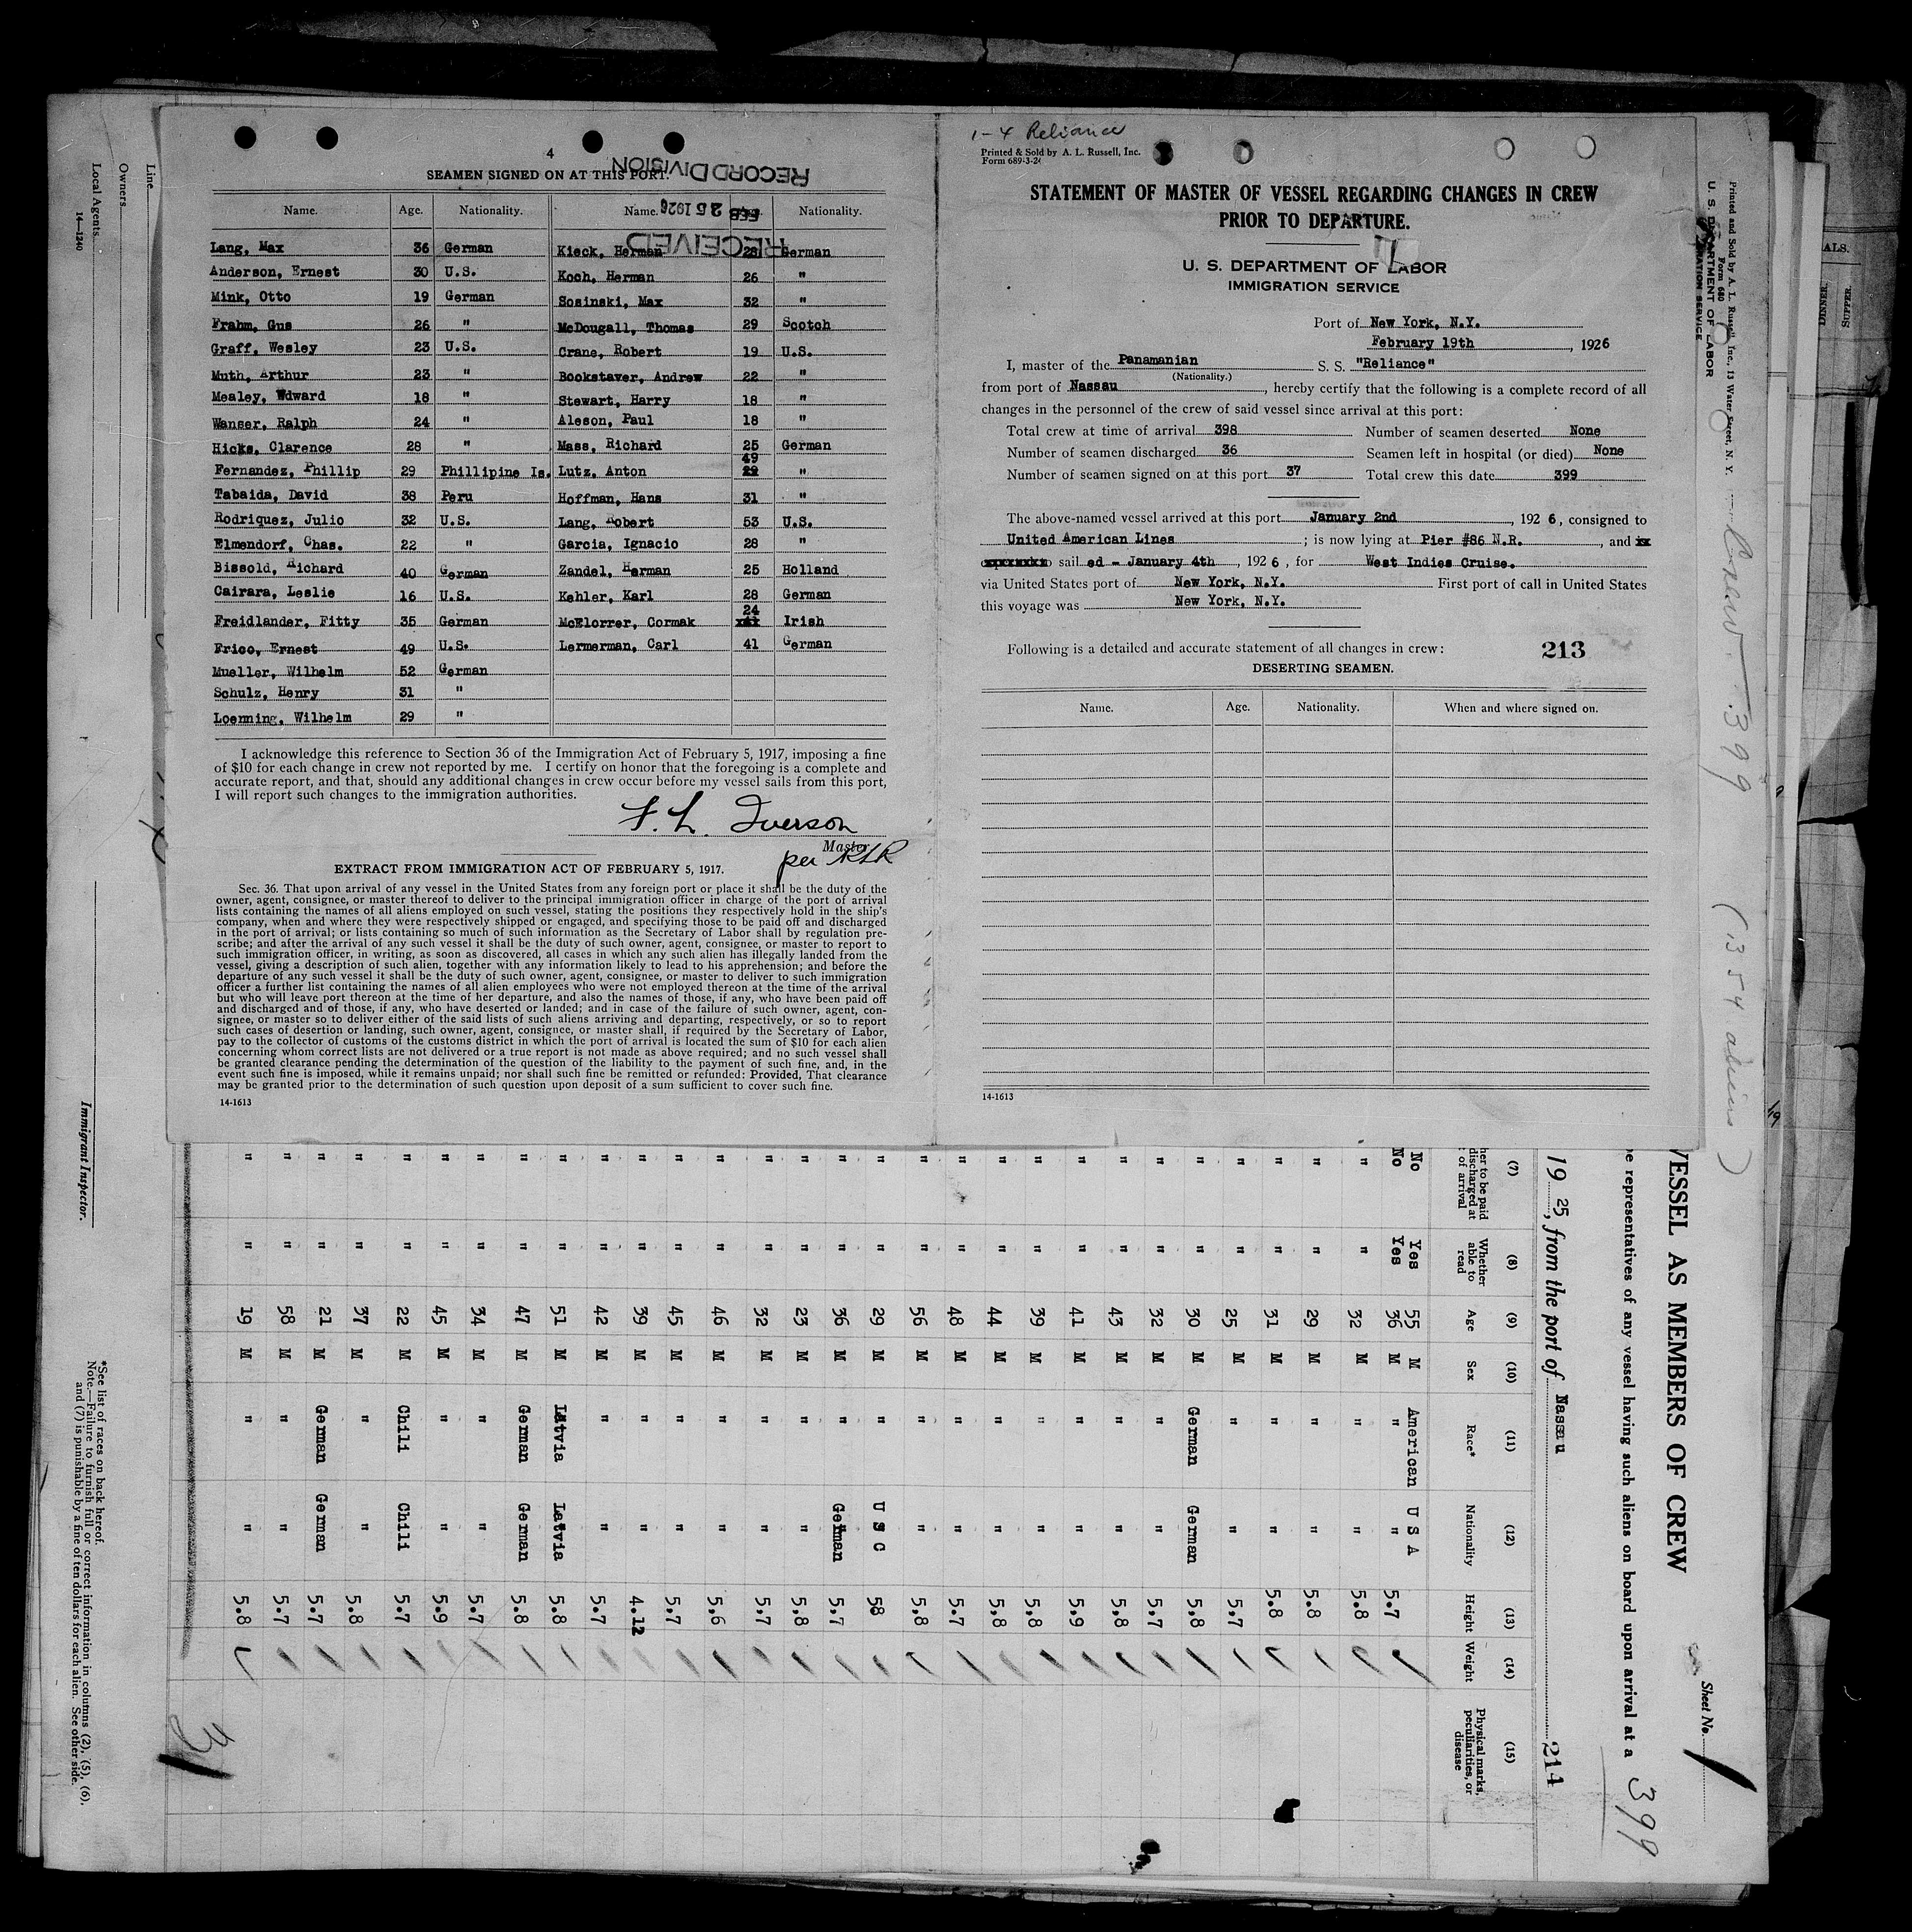 4
SEAMEN SIGNED ON AT THIS PORT.
RECORD DIVISION
FEB 25 1926
RECEIVED
Name. Age. Nationality. Name. Nationality.
Lang, Max 36 German Kieck, Herman 28 German
Anderson, Ernest 30 U.S. Koch, Herman 26 "
Mink, Otto 19 German Sosinski, Max 32 "
Frahm, Gus 26 " McDougall, Thomas 29 Scotch
Graff, Wesley 23 U.S. Crane, Robert 19 U.S.
Muth, Arthur 23 " Bookstaver, Andrew 22 "
Mealey, Wdward 18 " Stewart, Harry 18 "
Wanser, Ralph 24 " Aleson, Paul 18 "
Hicks, Clarence 28 " Mass, Richard 25 German
Fernandez, Phillip 29 Phillipine Is. Lutz, Anton 49 "
Tabaida, David 38 Peru Hoffman, Hans 31 "
Rodriquez, Julio 32 U.S. Lang, Robert 53 U.S.
Elmendorf, Chas. 22 " Garcia, Ignacio 28 "
Bissold, Richard 40 German Zandel, Herman 25 Holland
Cairara, Leslie 16 U.S. Kehler, Karl 28 German
Freidlander, Fitty 35 German McElorrer, Cormak 24 Irish
Frico, Ernest 49 U.S. Lermerman, Carl 41 German
Mueller, Wilhelm 52 German
Schulz, Henry 31 "
Loenning, Wilhelm 29 "
I acknowledge this reference to Section 36 of the Immigration Act of February 5, 1917, imposing a fine
of $10 for each change in crew not reported by me. I certify on honor that the foregoing is a complete and
accurate report, and that, should any additional changes in crew occur before my vessel sails from this port,
I will report such changes to the immigration authorities.
F. L. Iverson
Master
per RLR
EXTRACT FROM IMMIGRATION ACT OF FEBRUARY 5, 1917.
Sec. 36. That upon arrival of any vessel in the United States from any foreign port or place it shall be the duty of the
owner, agent, consignee, or master thereof to deliver to the principal immigration officer in charge of the port of arrival
lists containing the names of all aliens employed on such vessel, stating the positions they respectively hold in the ship's
company, when and where they were respectively shipped or engaged, and specifying those to be paid off and discharged
in the port of arrival; or lists containing so much of such information as the Secretary of Labor shall by regulation pre-
scribe; and after the arrival of any such vessel it shall be the duty of such owner, agent, consignee, or master to report to
such immigration officer, in writing, as soon as discovered, all cases in which any such alien has illegally landed from the
vessel, giving a description of such alien, together with any information likely to lead to his apprehension; and before the
departure of any such vessel it shall be the duty of such owner, agent, consignee, or master to deliver to such immigration
officer a further list containing the names of all alien employees who were not employed thereon at the time of the arrival
but who will leave port thereon at the time of her departure, and also the names of those, if any, who have been paid off
and discharged and of those, if any, who have deserted or landed; and in case of the failure of such owner, agent, con-
signee, or master so to deliver either of the said lists of such aliens arriving and departing, respectively, or so to report
such cases of desertion or landing, such owner, agent, consignee, or master shall, if required by the Secretary of Labor,
pay to the collector of customs of the customs district in which the port of arrival is located the sum of $10 for each alien
concerning whom correct lists are not delivered or a true report is not made as above required; and no such vessel shall
be granted clearance pending the determination of the question of the liability to the payment of such fine, and, in the
event such fine is imposed, while it remains unpaid; nor shall such fine be remitted or refunded: Provided, That clearance
may be granted prior to the determination of such question upon deposit of a sum sufficient to cover such fine.
14-1613
1-4 Reliance
Printed & Sold by A. L. Russell, Inc.
Form 689-3-24
STATEMENT OF MASTER OF VESSEL REGARDING CHANGES IN CREW
PRIOR TO DEPARTURE.
U. S. DEPARTMENT OF LABOR
IMMIGRATION SERVICE
Port of New York, N.Y.
February 19th, 1926
I, master of the Panamanian S. S. "Reliance"
(Nationality.)
from port of Nassau, hereby certify that the following is a complete record of all
changes in the personnel of the crew of said vessel since arrival at this port:
Total crew at time of arrival 398 Number of seamen deserted None
Number of seamen discharged 36 Seamen left in hospital (or died) None
Number of seamen signed on at this port 37 Total crew this date 399
The above-named vessel arrived at this port January 2nd, 192 6, consigned to
United American Lines; is now lying at Pier #86 N.R., and
sail ed - January 4th, 192 6, for West Indies Cruise.
via United States port of New York, N.Y. First port of call in United States
this voyage was New York, N.Y.
Following is a detailed and accurate statement of all changes in crew: 213
DESERTING SEAMEN.
Name. Age. Nationality. When and where signed on.
14-1613
Line
Owners
Local Agents
14-1240
Immigrant Inspector.
*See list of races on back hereof.
Note.—Failure to furnish full or correct information in columns (2), (5), (6),
and (7) is punishable by a fine of ten dollars for each alien. See other side.
Printed and Sold by A. L. Russell, Inc., 13 Water Street, N. Y.
Form 680
U. S. DEPARTMENT OF LABOR
IMMIGRATION SERVICE
Crew. 399
(354 aliens)
Sheet No.
VESSEL AS MEMBERS OF CREW
representatives of any vessel having such aliens on board upon arrival at a
399
19 25, from the port of Nassau 214
(7) (8) (9) (10) (11) (12) (13) (14) (15)
her to be paid discharged at of arrival Whether able to read Age Sex Race* Nationality Height Weight Physical marks, peculiarities, or disease
No Yes 55 M American U S A
No Yes 36 M " " 5.7
" " 32 M " " 5.8
" " 29 M " " 5.8
" " 31 M " " 5.8
" " 25 M " " 5,7
" " 30 M German German 5,8
" " 32 M " " 5,7
" " 43 M " " 5,8
" " 41 M " " 5,9
" " 39 M " " 5,8
" " 44 M " " 5,8
" " 48 M " " 5.7
" " 56 M " " 5,8
" " 29 M " U S C 58
" " 36 M " German 5,7
" " 23 M " " 5,8
" " 32 M " " 5,7
" " 46 M " " 5,6
" " 45 M " " 5,7
" " 39 M " " 4.12
" " 42 M " " 5.7
" " 51 M Latvia Latvia 5.8
" " 47 M German German 5.8
" " 34 M " " 5.7
" " 45 M " " 5.9
" " 22 M Chili Chili 5.7
" " 37 M " " 5.8
" " 21 M German German 5.7
" " 58 M " " 5.7
" " 19 M " " 5.8
31
ALS.
DINNER.
SUPPER.